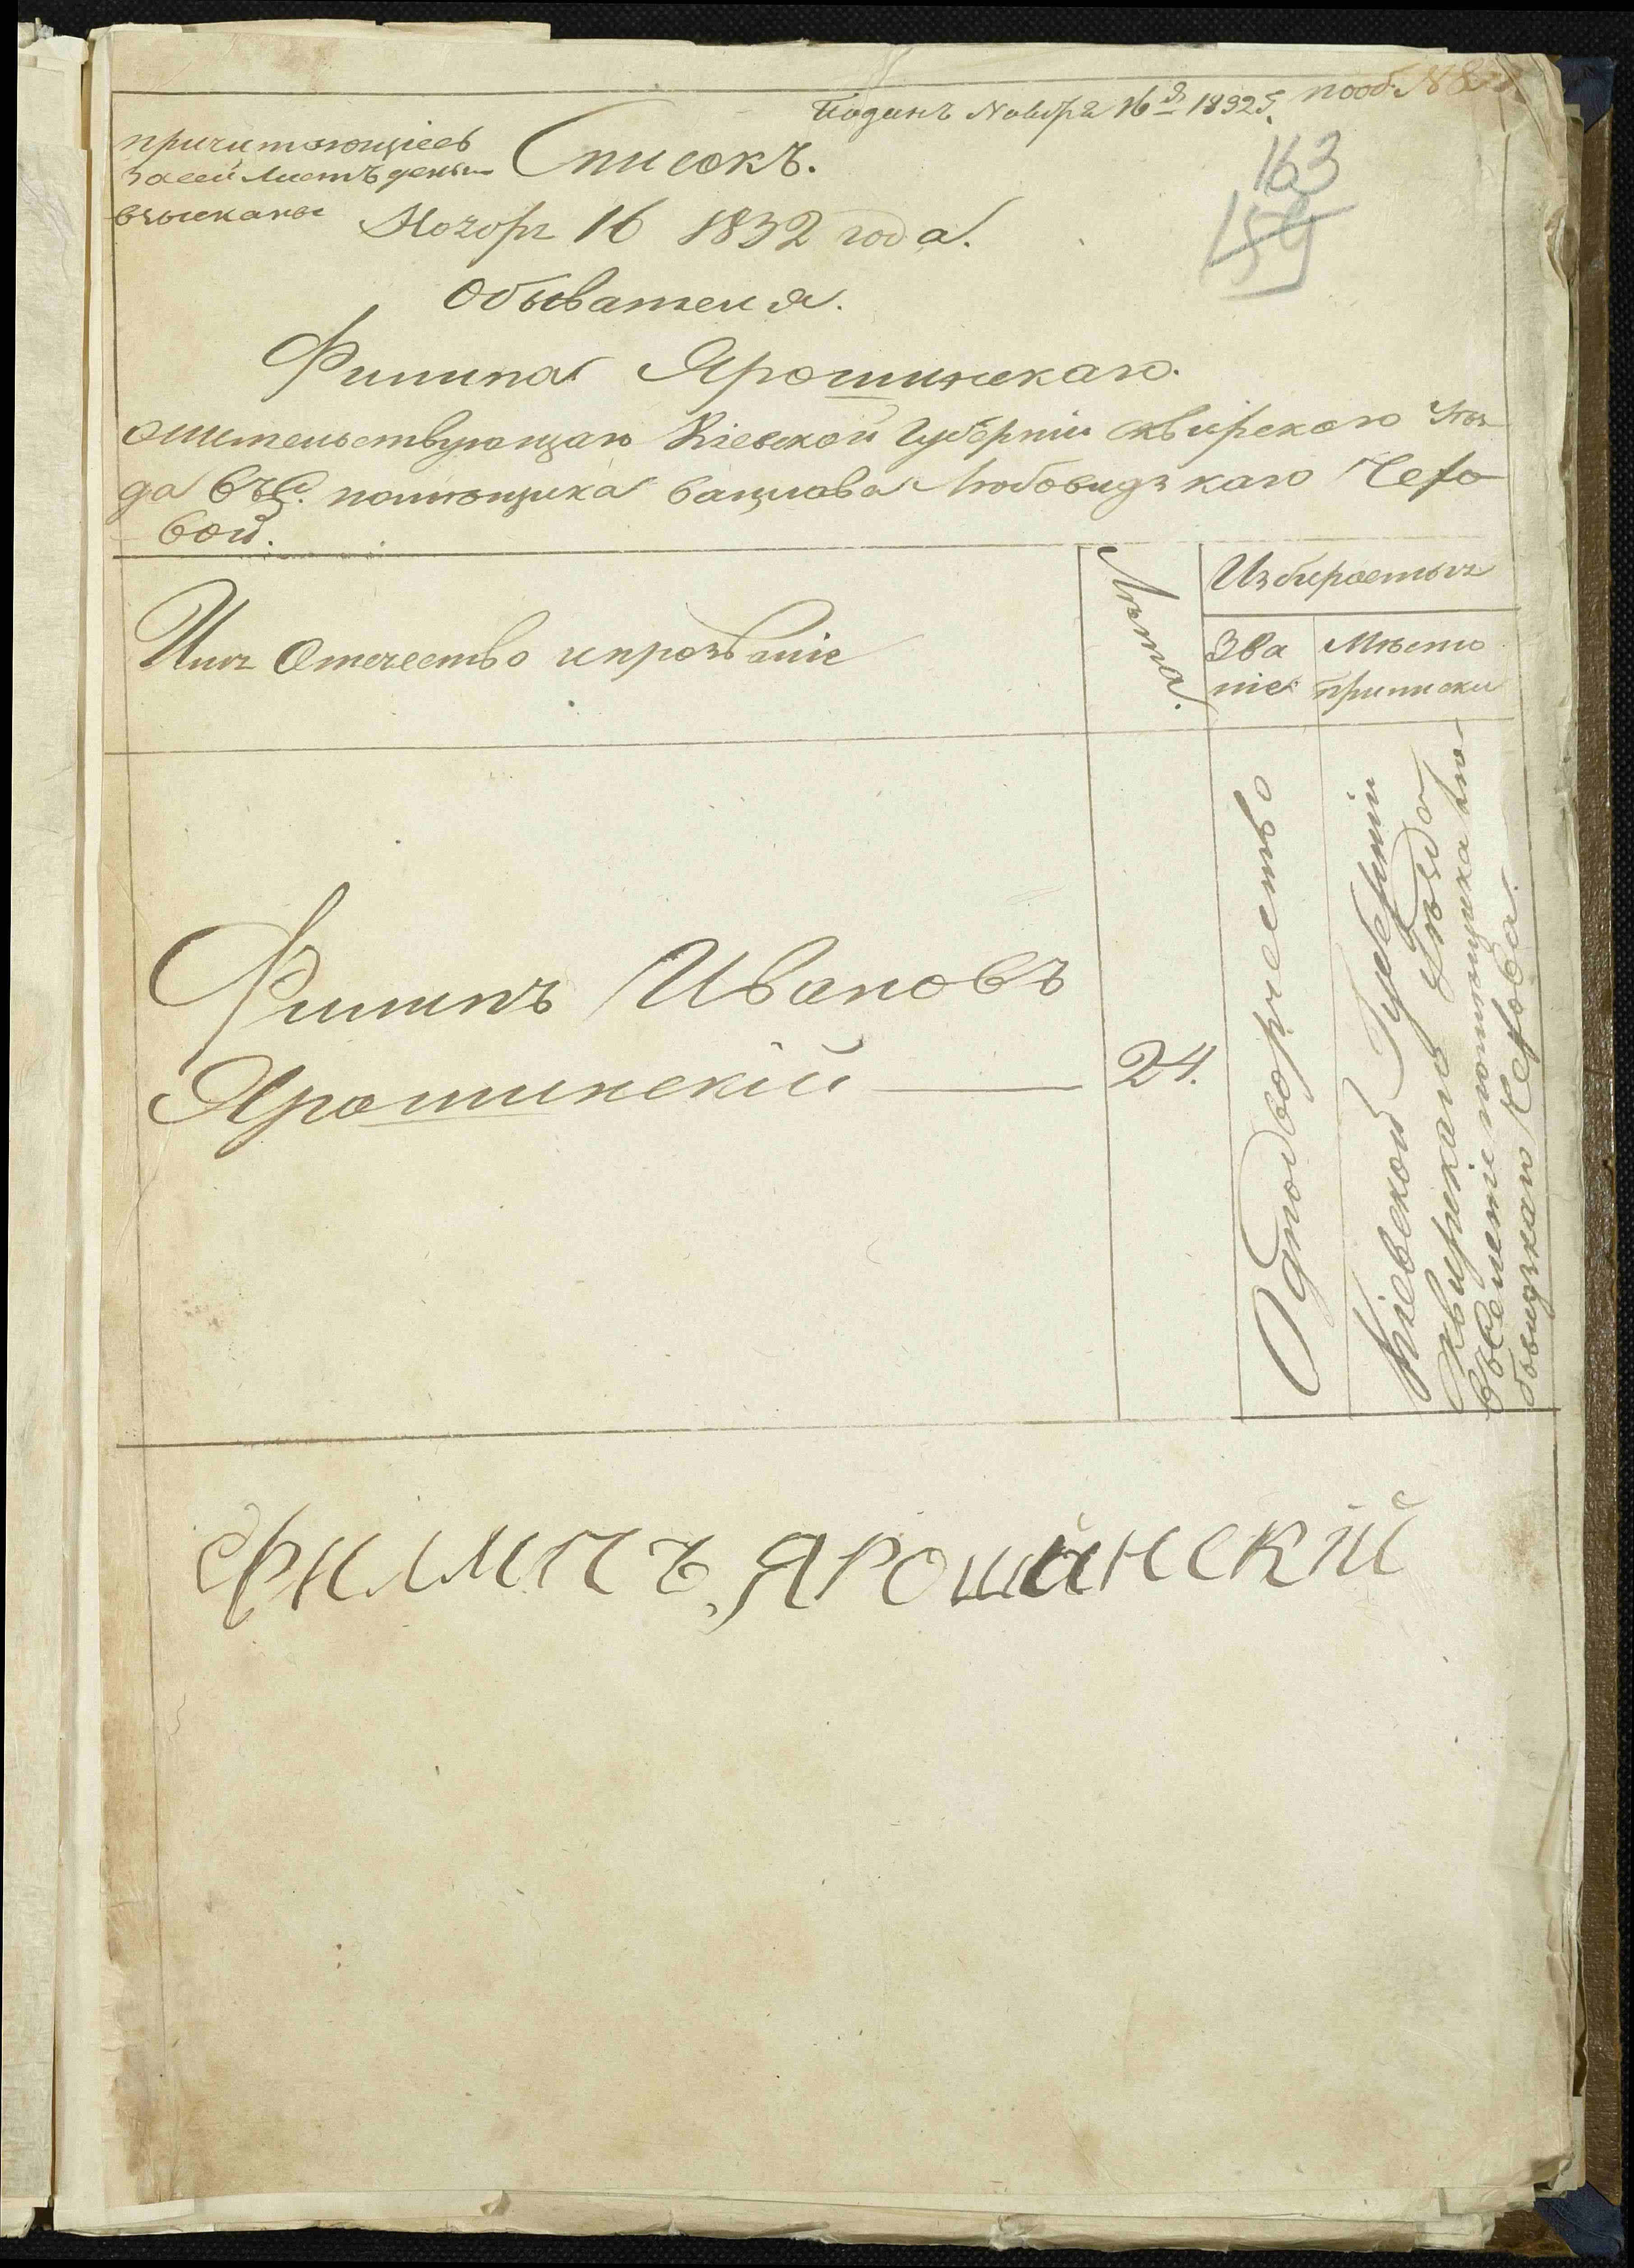 Поданъ Ноября 16го 1832 г.
163
159
причитающіесь
за сей листъ деньги
взысканы
Списокъ.
Ноября 16 1832 года.
Обывателя.
Филипа Ярошинскаго.
жительствующаго Кіевской Губерніи Сквирскаго Уѣз
да въ с. помѣщика Вацлава Любовидзкаго
вой.
Имя Отечество и прозваніе
Лѣта.
Избираетъ
Зва
ніе
Мѣсто
приписки
Филипъ Ивановъ
Ярошинскій
24.
Однодворчество
Кіевской Губерніи
Сквирскаго уѣзда
въ имѣніе помѣщика Лю
бовидзкаго
Филипъ Ярошинскій